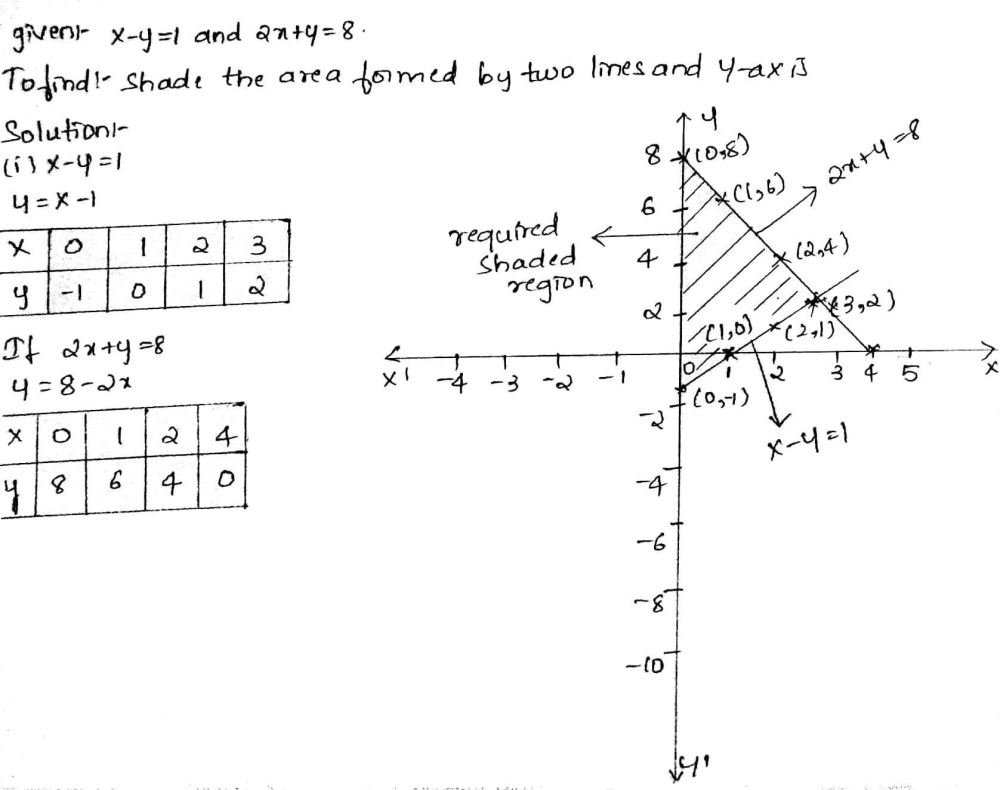 given:- x-y=1 and 2x+y=8.
To find:- Shade the area formed by two lines and y-axis
Solution:-
(i) x-y=1
y=x-1
x 0 1 2 3
y -1 0 1 2
If 2x+y=8
y=8-2x
x 0 1 2 4
y 8 6 4 0
y
8 (0,8)
2x+y=8
6 (1,6)
required
shaded
region
4 (2,4)
2 (3,2)
(1,0) (2,1)
x' -4 -3 -2 -1 0 1 2 3 4 5 x
(0,-1)
-2
x-y=1
-4
-6
-8
-10
y'